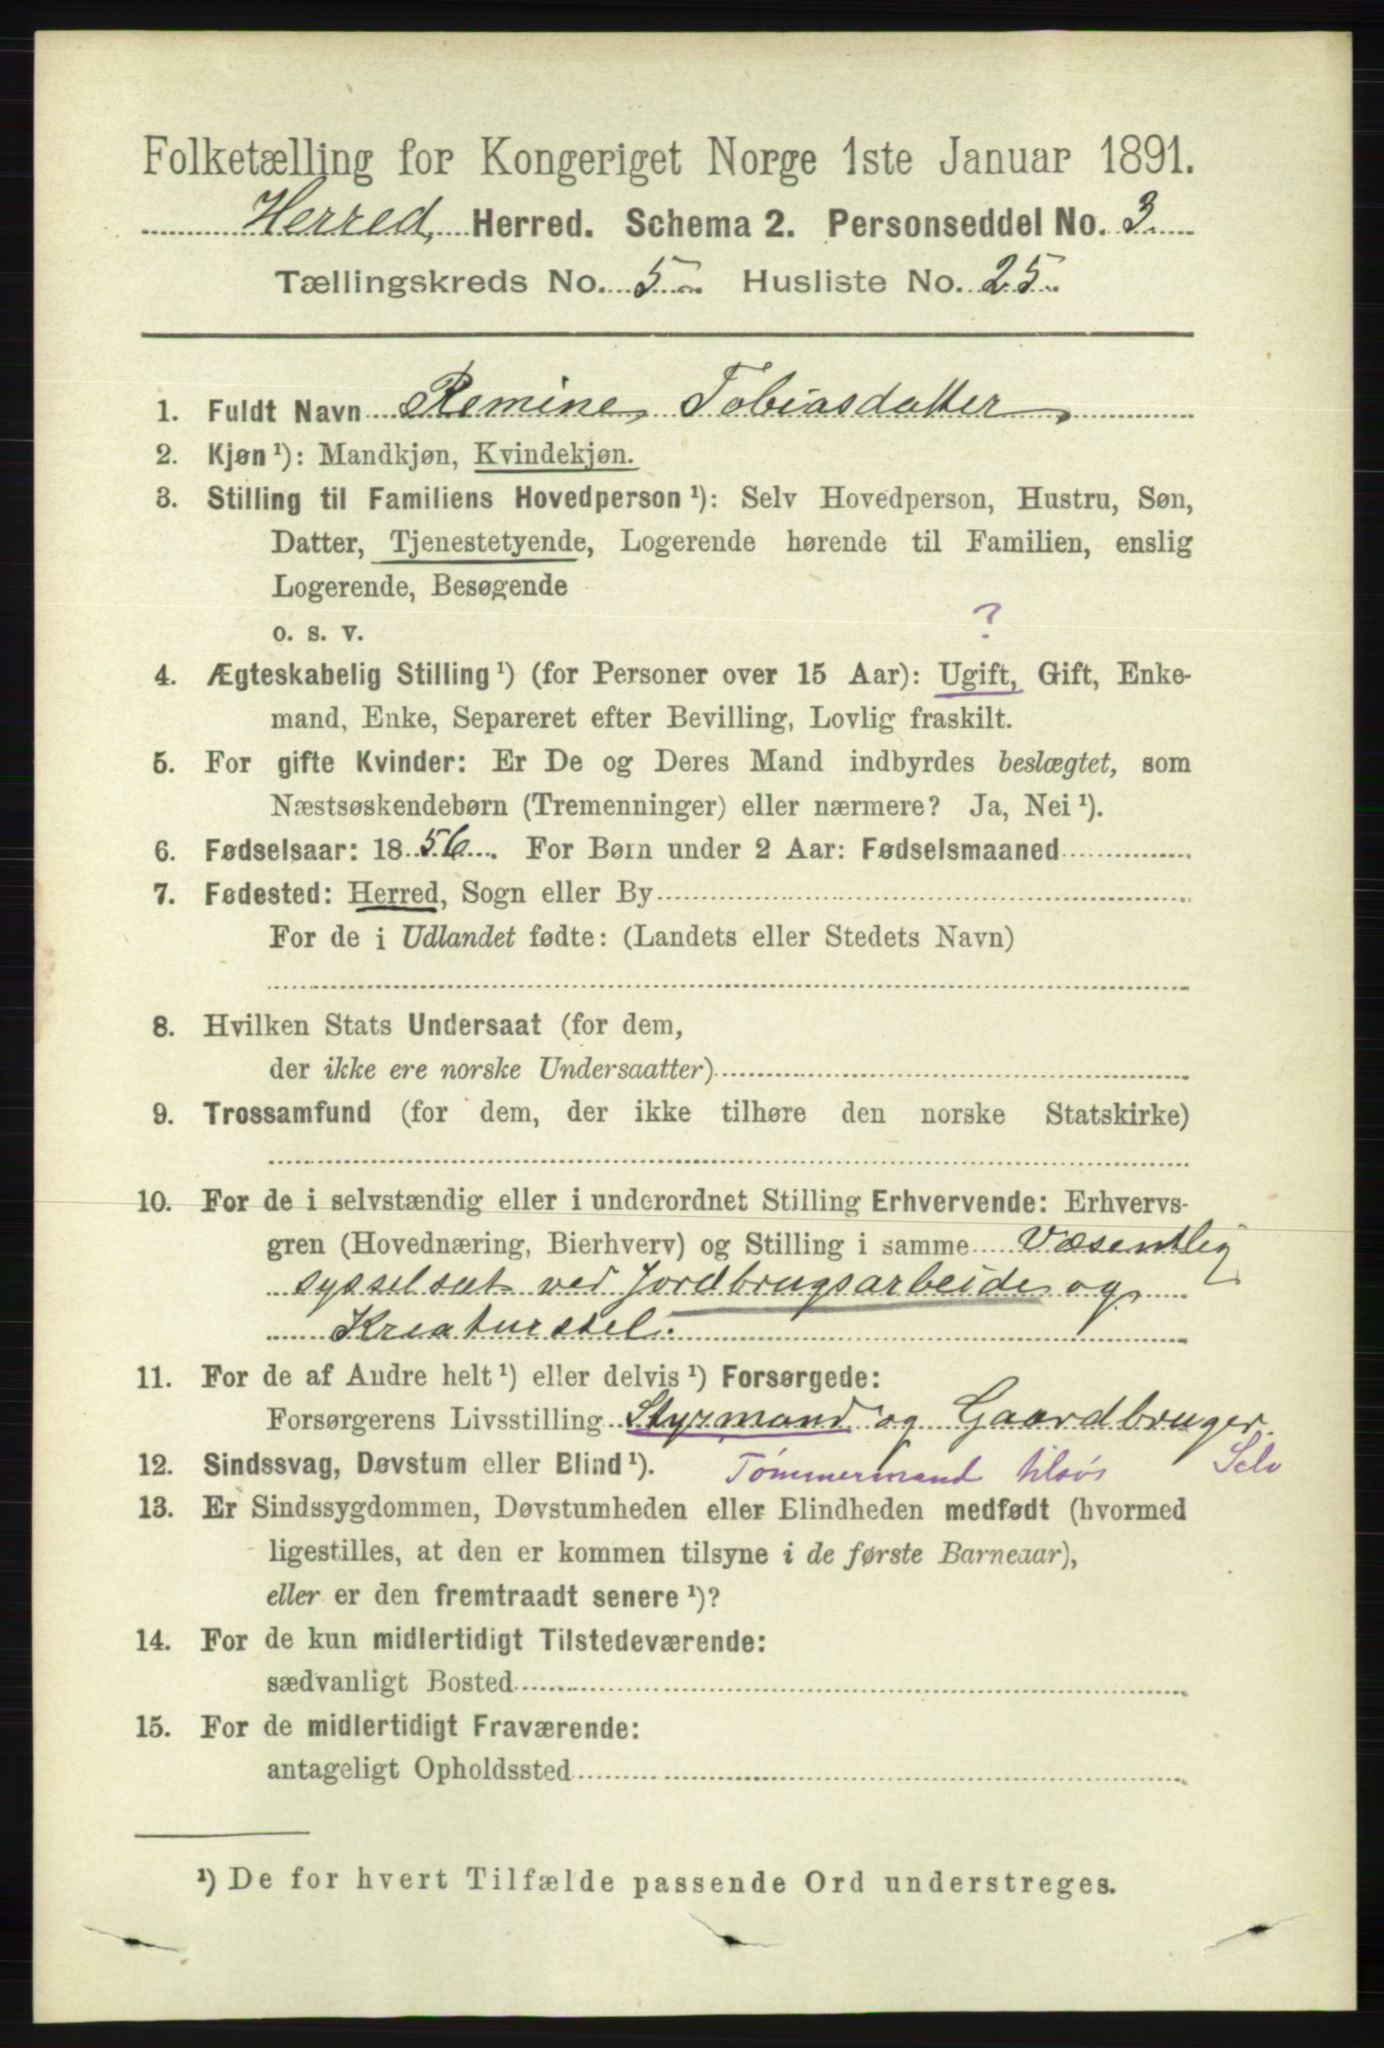 Folketælling for Kongeriget Norge 1ste Januar 1891.
Herred Herred. Schema 2. Personseddel No. 3
Tællingskreds No. 5 Husliste No. 25
1. Fuldt Navn Remine Tobiasdatter
2. Kjøn ¹): Mandkjøn, Kvindekjøn.
3. Stilling til Familiens Hovedperson ¹): Selv Hovedperson, Hustru, Søn,
Datter, Tjenestetyende, Logerende hørende til Familien, enslig
Logerende, Besøgende
o. s. v.
?
4. Ægteskabelig Stilling ¹) (for Personer over 15 Aar): Ugift, Gift, Enke-
mand, Enke, Separeret efter Bevilling, Lovlig fraskilt.
5. For gifte Kvinder: Er De og Deres Mand indbyrdes beslægtet, som
Næstsøskendebørn (Tremenninger) eller nærmere? Ja, Nei ¹).
6. Fødselsaar: 1856. For Børn under 2 Aar: Fødselsmaaned
7. Fødested: Herred, Sogn eller By
For de i Udlandet fødte: (Landets eller Stedets Navn)
8. Hvilken Stats Undersaat (for dem,
der ikke ere norske Undersaatter)
9. Trossamfund (for dem, der ikke tilhøre den norske Statskirke)
10. For de i selvstændig eller i underordnet Stilling Erhvervende: Erhvervs-
gren (Hovednæring, Bierhverv) og Stilling i samme Væsentlig
sysselsat ved Jordbrugsarbeide og
Kreaturstel.
11. For de af Andre helt ¹) eller delvis ¹) Forsørgede:
Forsørgerens Livsstilling Styrmand og Gaardbruger.
12. Sindssvag, Døvstum eller Blind ¹). Tømmermand tilsøs Selv
13. Er Sindssygdommen, Døvstumheden eller Blindheden medfødt (hvormed
ligestilles, at den er kommen tilsyne i de første Barneaar),
eller er den fremtraadt senere ¹)?
14. For de kun midlertidigt Tilstedeværende:
sædvanligt Bosted
15. For de midlertidigt Fraværende:
antageligt Opholdssted
¹) De for hvert Tilfælde passende Ord understreges.